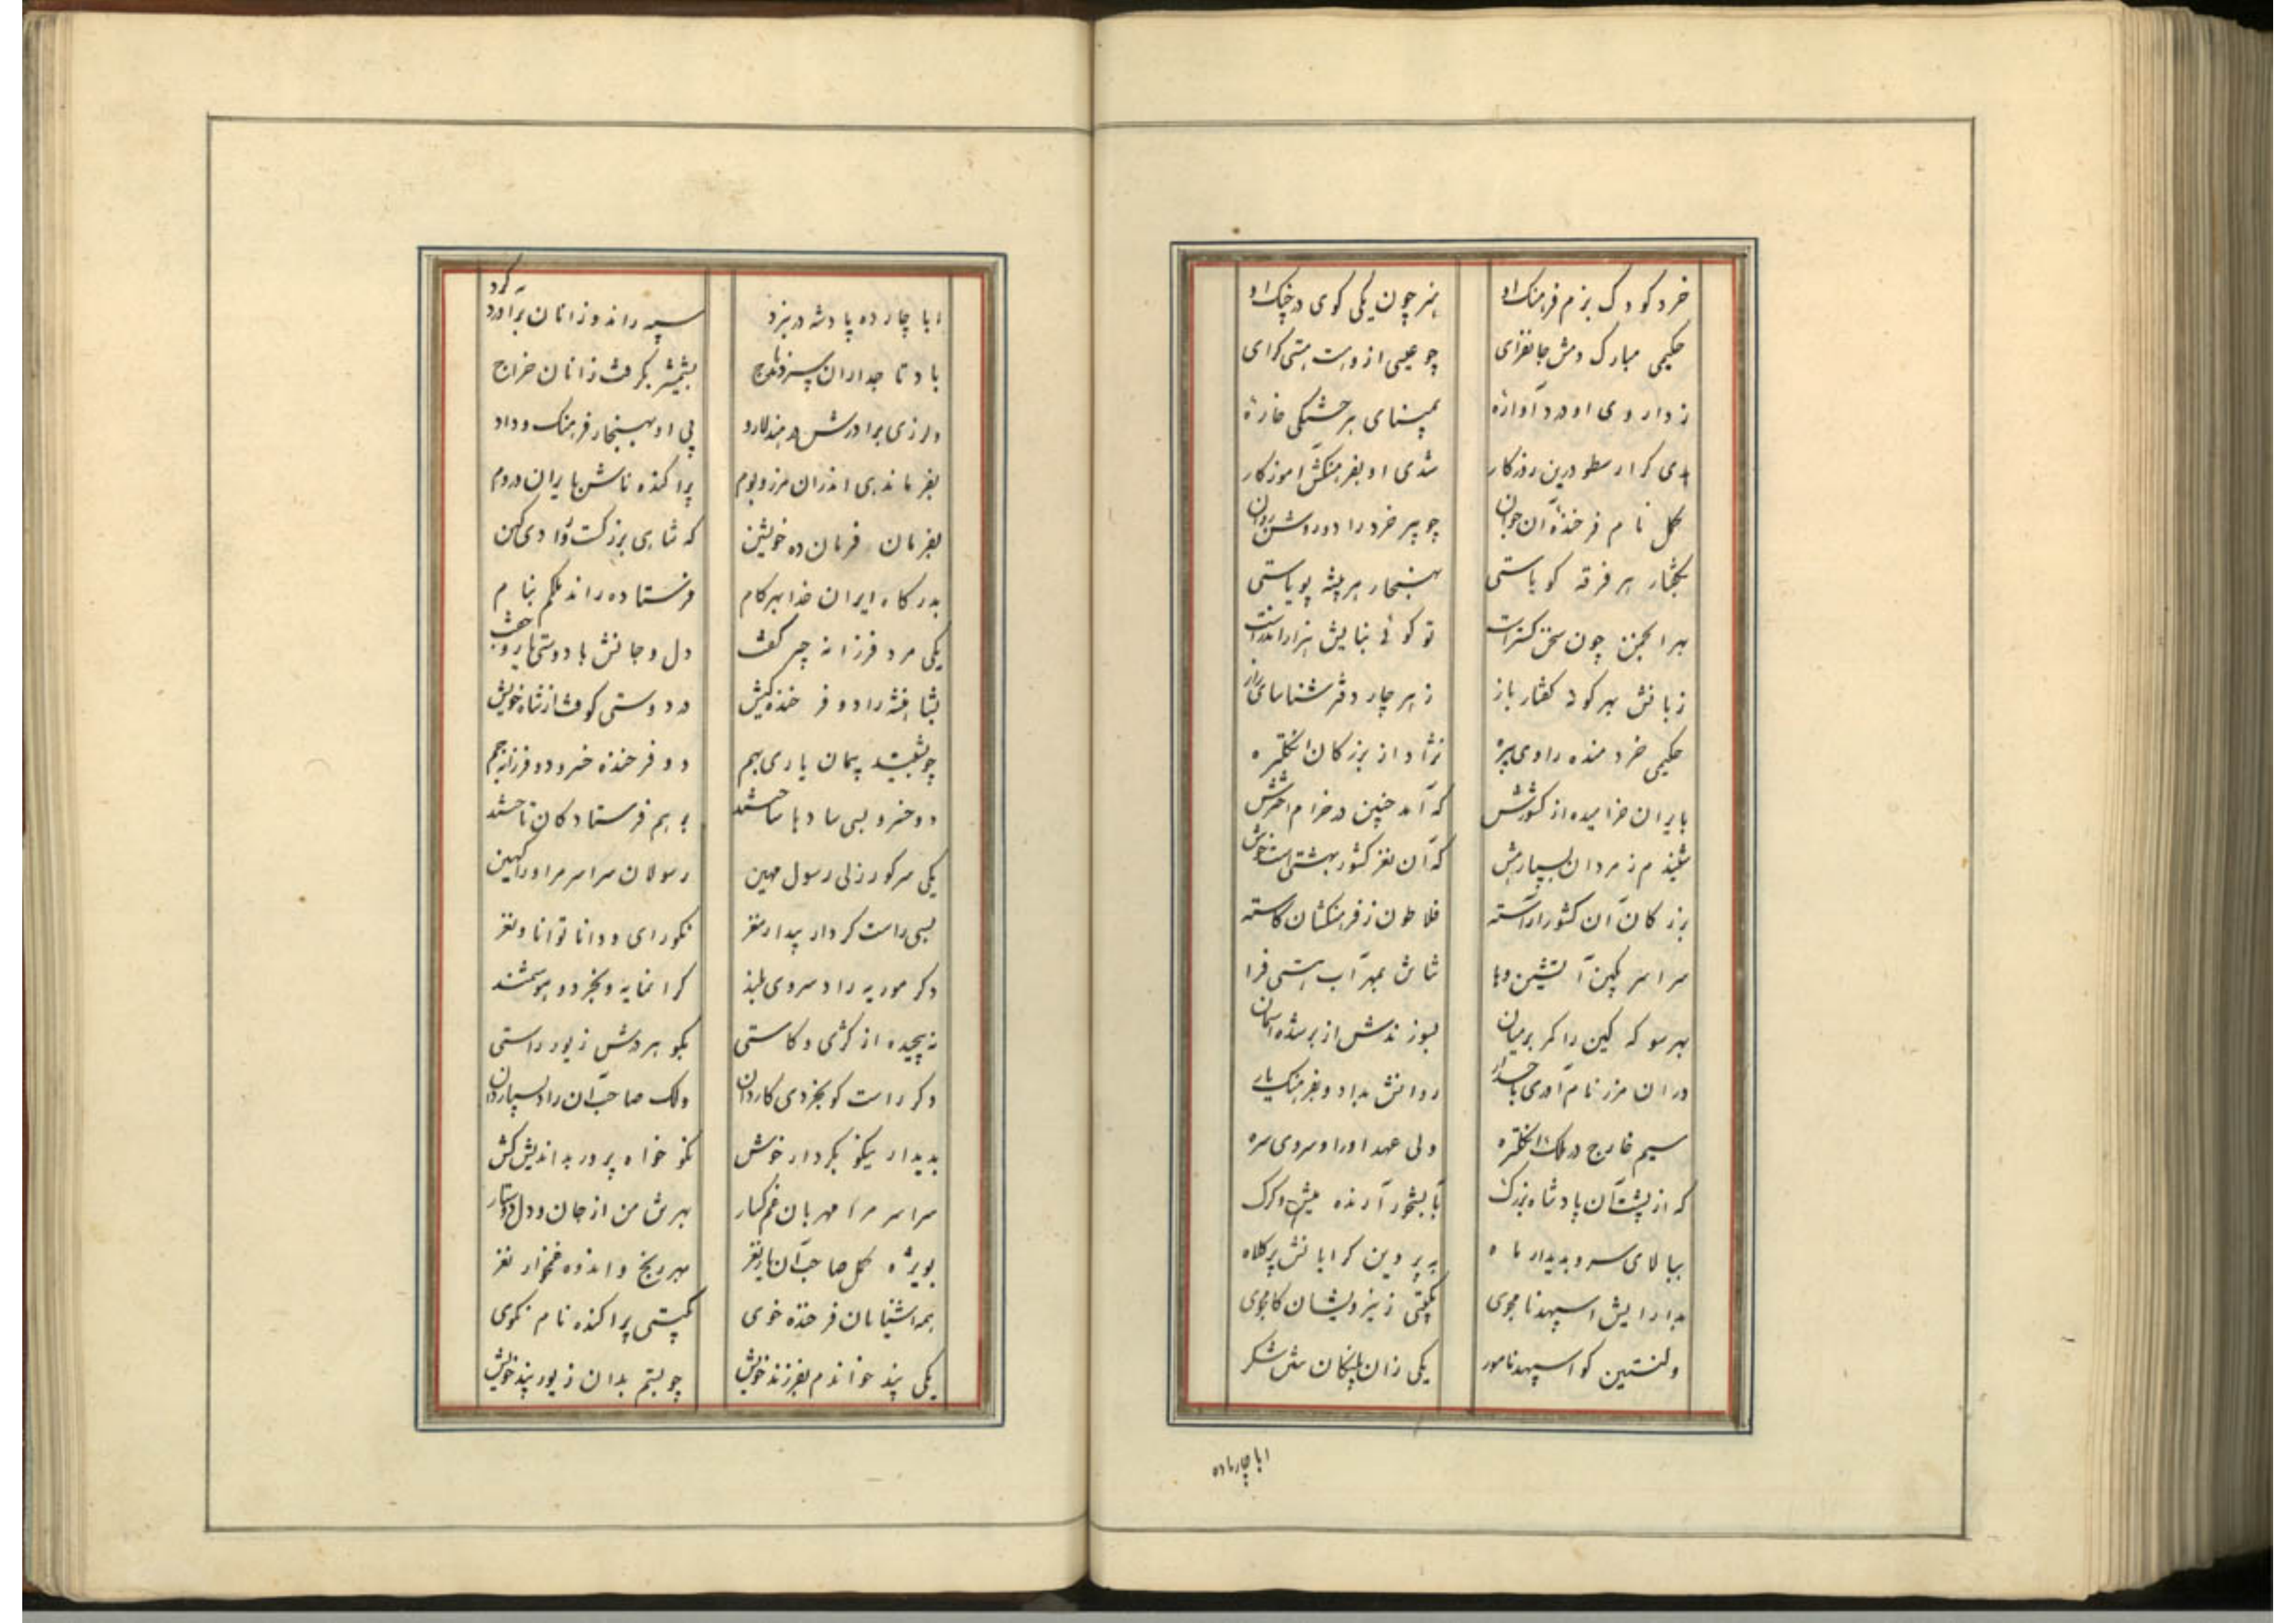 خرد کودک بزم فرهنک او هنر چون یکی کوی در چنک او
حکیمی مبارک دمش جانفزای چو عیسی از وهستی کرای
ز داروی او درد آوازه
بدی کر ارسطو درین روزکار شدی او بفرهنکش آموزکار
کمل نام فرخنده آن جوان چو پیر خرد را دو روشن روان
بگفتار هر فرقه کویاستی بهنجار هر پیشه پویاستی
بهر انجمن چون سخن کستراست تو کوئی هزار اندر است
زبانش بهر کونه کفتار باز ز هر چار دفتر شناسای راز
حکیمی خردمنده راوی نژاد از بزرکان انکلتره
بایران خرامیده از کشورش که آمد چنین در خرام اخترش
شنیدم ز مردان بسیارهش که آن نغز کشور بهشتی است خوش
بزرکان آن کشور آراسته فلاطون ز فرهنکشان کاسته
سراسر بکین آتشین وبا شان بمهر آب هستی فزا
بهر سو که کین را کمر بر میان بسوزندش از بر شده آسمان
در آن مرز نام آوری باجدار روانش بداد و بفرهنک یار
سیم خارج در ملک انکلتره ولی عهد او را و سروی سره
که از پشت آن پادشاه بزرک بآبشخور آرنده میش و کرک
ببالای سرو بدیدار ماه به پروین کرایانش پر کلاه
بدارایش اسپهبد نامجوی بکیتی ز نیرویشان کامجوی
ولنستین کو اسپهبد نامور یکی زان پلنکان شکر
ابا چارده
ابا چارده پادشه در نبرد سپه راند و زانان برآورد کرد
با و تاجداران سپردند تاج بشمشیر بکرفت زانان خراج
ولرزی برادرش در هند پی او بهنجار فرهنک و داد
بفرماندهی اندران مرز و بوم پراکنده نامش بایران و روم
بفرمان فرمان ده خویشتن که شاهی بزرکست
بدرکاه ایران خدا بهر کام فرستاده راند ملکم بنام
یکی مرد فرزانه چیر کفت دل و جانش با دوستیها جفت
بشاهنشه راد و فرخنده کیش در دوستی کوفت از شاه خویش
چو بستند پیمان یاری بهم دو فرخنده خسرو دو فرزانه جم
دو خسرو بسی ساد با ساختند بر هم فرستادکان تاختند
یکی سرکور ازلی رسول مهین رسولان سراسر مر او را کهین
بسی راست کردار بیدار مغز نکو رای و دانا توانا و نغز
دکر موریه راد سروی بلند کرانمایه و بخرد و هوشمند
نه پیچیده از کژی و کاستی بکوهر درش زیور راستی
دکر راست کو بخردی کاردان ولک صاحب آن راد بسیاردان
بدیدار نیکو بکردار خوش نکو خواه پرور بداندیش کش
سراسر مرا مهربان غم کسار بهرش من از جان و دل دوستار
بویژه کمل صاحب آن یار نغز بهر رنج و اندوه غمخوار نغز
همه آشنایان فرخنده خوی بکیتی پراکنده نام نکوی
یکی پند خواندم بفرزند خویش چو بستم بدان زیور پند خویش